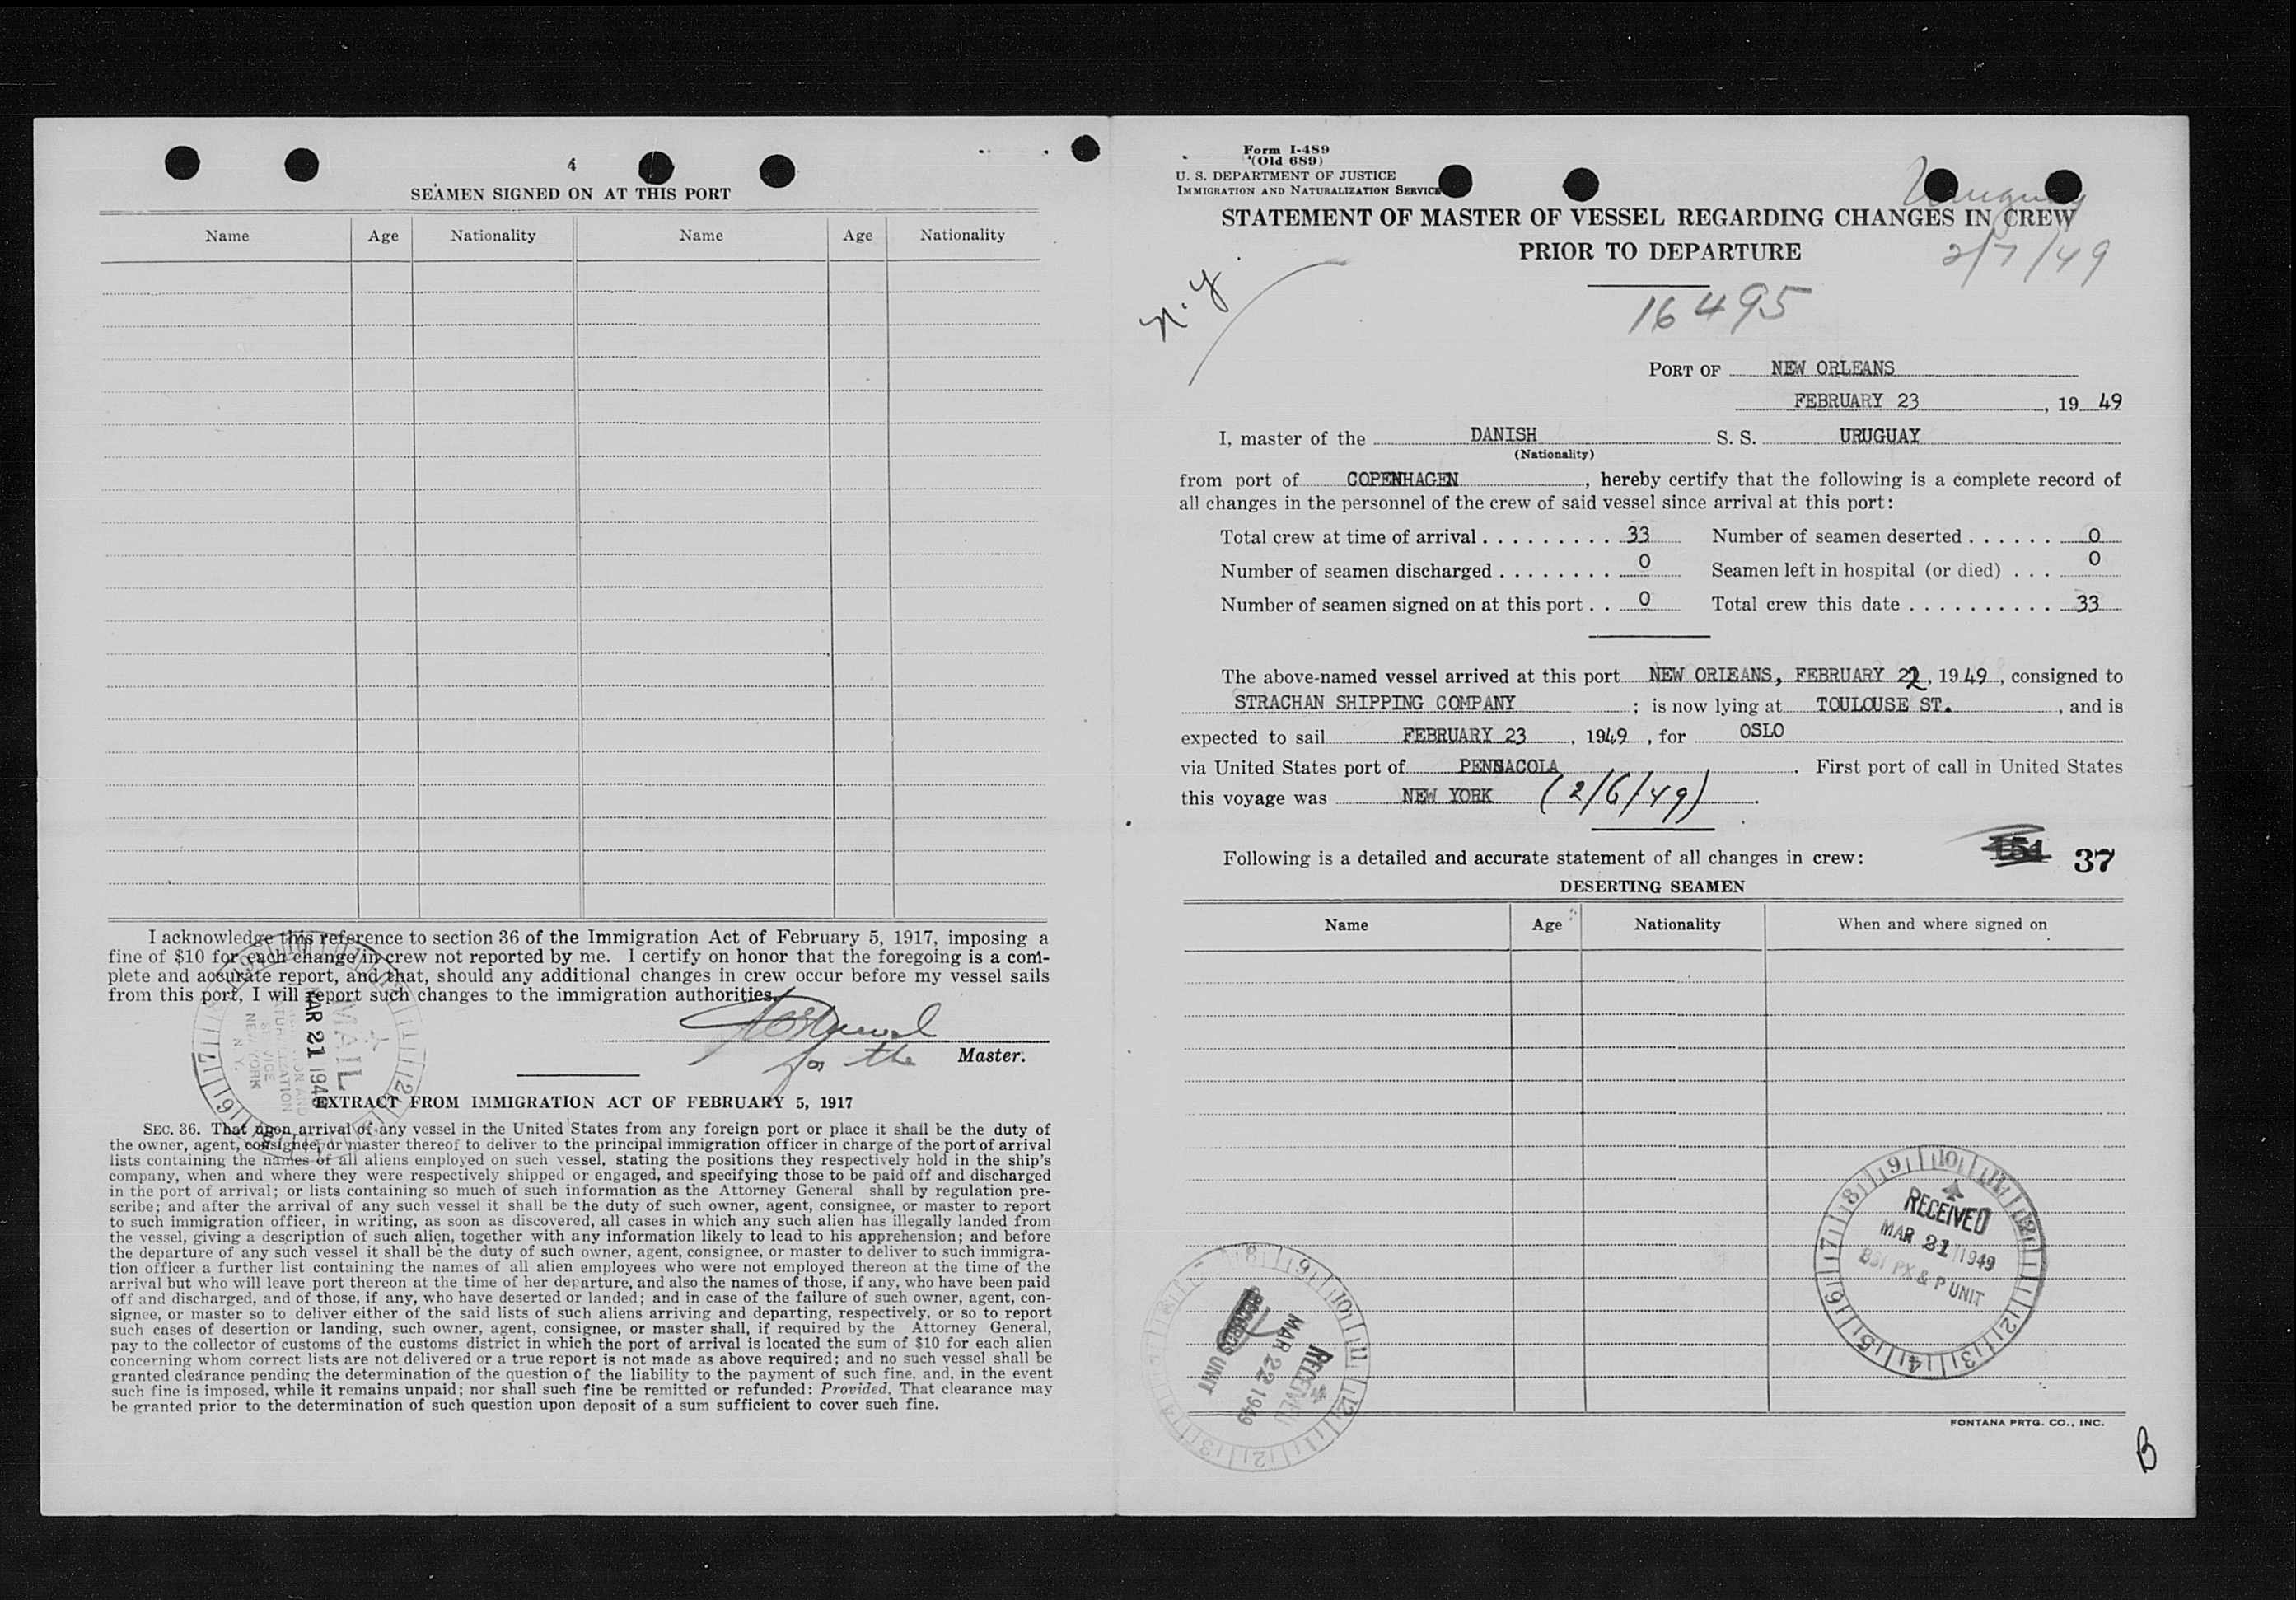 4
SEAMEN SIGNED ON AT THIS PORT
Name Age Nationality Name Age Nationality
I acknowledge this reference to section 36 of the Immigration Act of February 5, 1917, imposing a
fine of $10 for each change in crew not reported by me. I certify on honor that the foregoing is a com-
plete and accurate report, and that, should any additional changes in crew occur before my vessel sails
from this port, I will report such changes to the immigration authorities.
for the Master.
MAIL
MAR 21 1949
NEW YORK
N. Y.
EXTRACT FROM IMMIGRATION ACT OF FEBRUARY 5, 1917
SEC. 36. That upon arrival of any vessel in the United States from any foreign port or place it shall be the duty of
the owner, agent, consignee, or master thereof to deliver to the principal immigration officer in charge of the port of arrival
lists containing the names of all aliens employed on such vessel, stating the positions they respectively hold in the ship's
company, when and where they were respectively shipped or engaged, and specifying those to be paid off and discharged
in the port of arrival; or lists containing so much of such information as the Attorney General shall by regulation pre-
scribe; and after the arrival of any such vessel it shall be the duty of such owner, agent, consignee, or master to report
to such immigration officer, in writing, as soon as discovered, all cases in which any such alien has illegally landed from
the vessel, giving a description of such alien, together with any information likely to lead to his apprehension; and before
the departure of any such vessel it shall be the duty of such owner, agent, consignee, or master to deliver to such immigra-
tion officer a further list containing the names of all alien employees who were not employed thereon at the time of the
arrival but who will leave port thereon at the time of her departure, and also the names of those, if any, who have been paid
off and discharged, and of those, if any, who have deserted or landed; and in case of the failure of such owner, agent, con-
signee, or master so to deliver either of the said lists of such aliens arriving and departing, respectively, or so to report
such cases of desertion or landing, such owner, agent, consignee, or master shall, if required by the Attorney General,
pay to the collector of customs of the customs district in which the port of arrival is located the sum of $10 for each alien
concerning whom correct lists are not delivered or a true report is not made as above required; and no such vessel shall be
granted clearance pending the determination of the question of the liability to the payment of such fine, and, in the event
such fine is imposed, while it remains unpaid; nor shall such fine be remitted or refunded: Provided, That clearance may
be granted prior to the determination of such question upon deposit of a sum sufficient to cover such fine.
Form I-489
(Old 689)
U. S. DEPARTMENT OF JUSTICE
IMMIGRATION AND NATURALIZATION SERVICE
Uruguay
STATEMENT OF MASTER OF VESSEL REGARDING CHANGES IN CREW
PRIOR TO DEPARTURE
2/7/49
n.y.
16495
PORT OF NEW ORLEANS
FEBRUARY 23, 19 49
I, master of the DANISH S. S. URUGUAY
(Nationality)
from port of COPENHAGEN, hereby certify that the following is a complete record of
all changes in the personnel of the crew of said vessel since arrival at this port:
Total crew at time of arrival 33 Number of seamen deserted 0
Number of seamen discharged 0 Seamen left in hospital (or died) 0
Number of seamen signed on at this port 0 Total crew this date 33
The above-named vessel arrived at this port NEW ORLEANS, FEBRUARY 22, 1949, consigned to
STRACHAN SHIPPING COMPANY; is now lying at TOULOUSE ST., and is
expected to sail FEBRUARY 23, 1949, for OSLO
via United States port of PENSACOLA. First port of call in United States
this voyage was NEW YORK (2/6/49).
Following is a detailed and accurate statement of all changes in crew:
154 37
DESERTING SEAMEN
Name Age Nationality When and where signed on
RECEIVED
MAR 21 1949
BSI PX & P UNIT
RECEIVED
MAR 22 1949
RECORDS UNIT
FONTANA PRTG. CO., INC.
B